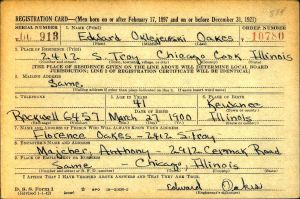 REGISTRATION CARD—(Men born on or after February 17, 1897 and on or before December 31, 1921)
SERIAL NUMBER 1. NAME (Print) ORDER NUMBER
U 913 Edward Oakes 10780
(First) (Middle) (Last)
2. PLACE OF RESIDENCE (Print)
2412 S Troy Chicago Cook Illinois
[THE PLACE OF RESIDENCE GIVEN ON THE LINE ABOVE WILL DETERMINE LOCAL BOARD
JURISDICTION; LINE 2 OF REGISTRATION CERTIFICATE WILL BE IDENTICAL]
3. MAILING ADDRESS
Same
4. TELEPHONE 5. AGE IN YEARS 6. PLACE OF BIRTH
41 Kewanee
Rockwell 6457 March 27 1900 Illinois
7. NAME AND ADDRESS OF PERSON WHO WILL ALWAYS KNOW YOUR ADDRESS
Florence Oakes - 2412 S Troy
8. EMPLOYER'S NAME AND ADDRESS
Majcher Anthony - 2912 Cermak Road
9. PLACE OF EMPLOYMENT OR BUSINESS
Same - Chicago, Illinois
I AFFIRM THAT I HAVE VERIFIED ABOVE ANSWERS AND THAT THEY ARE TRUE.
D. S. S. Form 1
Edward Oakes